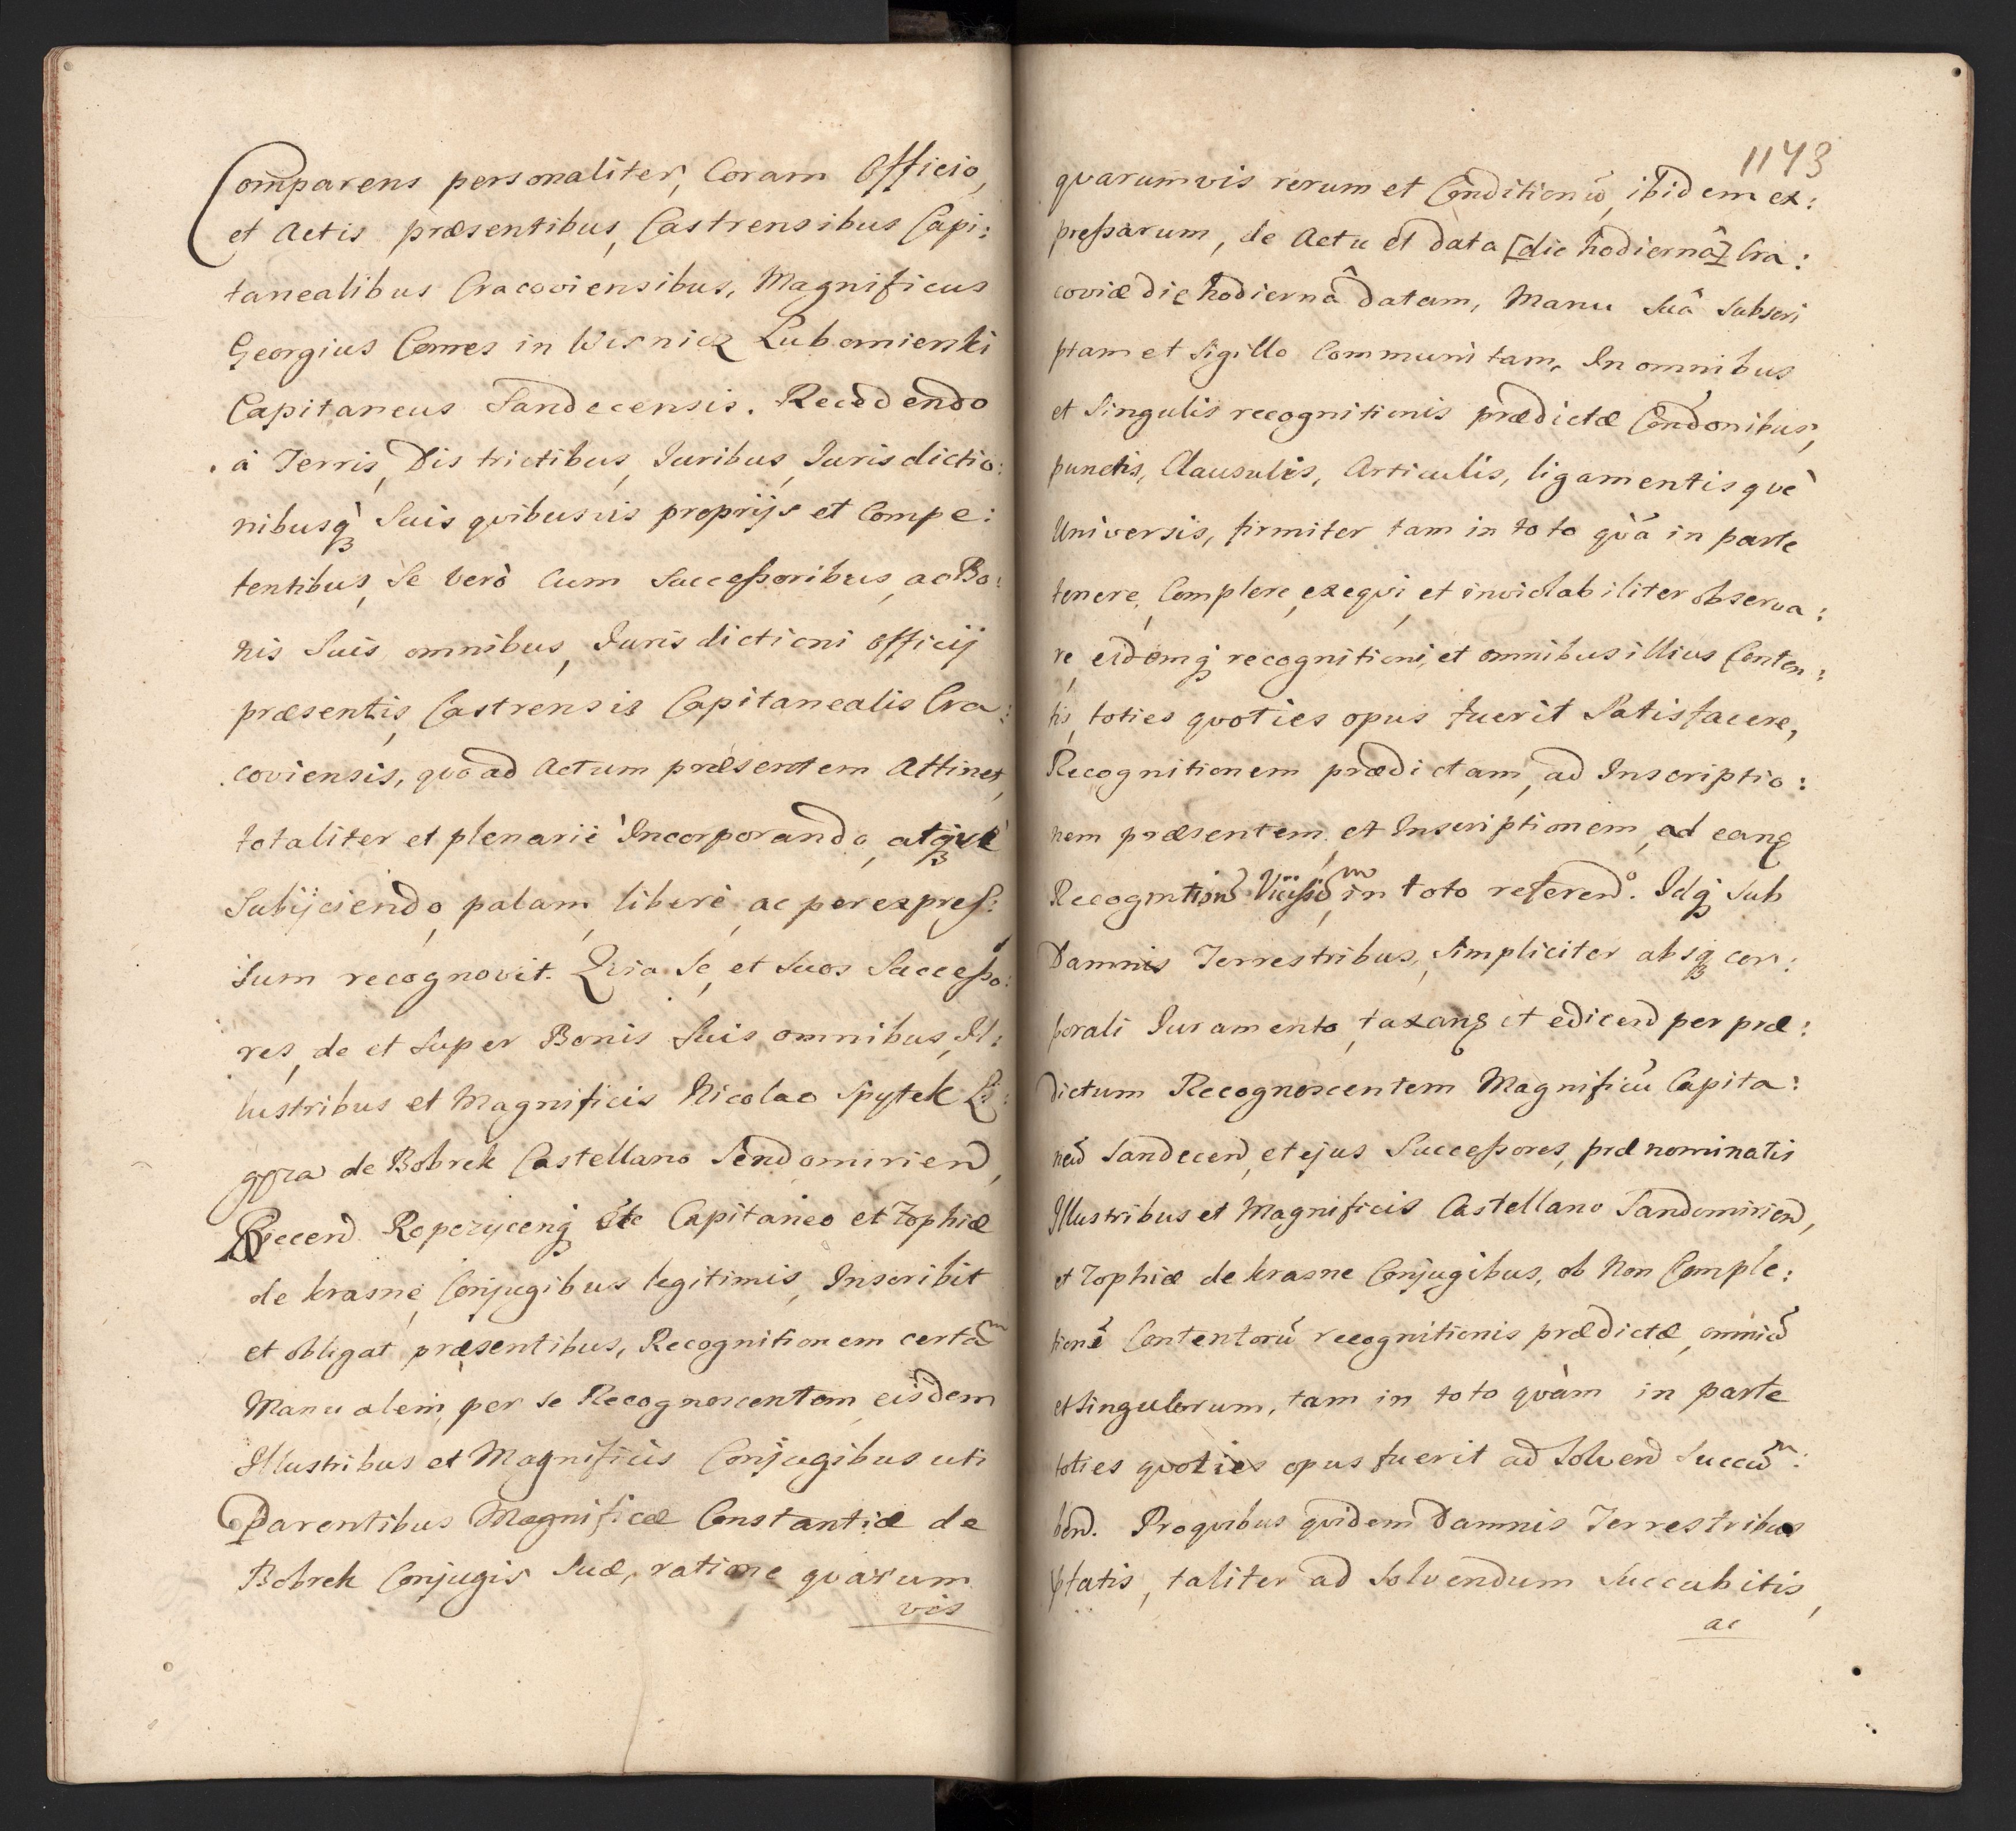 Comparens personaliter, Coram Officio,
et Actis præsentibus, Castrensibus Capi:
tanealibus Cracoviensibus, Magnificus
Georgius Comes in Wisnicz Lubomierski
Capitaneus Sandecensis. Recedendo
à Terris, Districtibus, Juribus, Jurisdictio:
nibusq̀ Suis qvibusvis proprijs et Compe:
tentibus, Se verò Cum Successoribus, ac Bo:
nis Suis omnibus, Jurisdictioni officij
præsentis, Castrensis Capitanealis Cra:
coviensis, qvo ad Actum præsentem Attinet,
totaliter et plenariè Incorporando, atqvè
Subijciendo, palam, liberè, ac per expres:
sum recognovit. Qvia Se, et Suos Successo:
res, de et Super Bonis Suis omnibus, Il:
lustribus et Magnificis Nicolao Spytek Li:
gęza de Bobrek Castellano Sendomirien,
Biecen Ropczycenq̃ etc Capitaneo et Zophiæ
de krasne, Conjugibus legitimis, Inscribit
et obligat præsentibus, Recognitionem certam
Manualem, per se Recognoscentem, eisdem
Illustribus et Magnificis Conjugibus uti
Parentibus Magnificæ Constantiæ de
Bobrek Conjugis Suæ, ratione qvarum
vis
1173
qvarumvis rerum et Conditionũ, ibidem ex:
pressarum, de Actu et data [die hodiernâ] Cra:
coviæ die hodiernâ datam, Manu Suâ Subscri
ptam et Sigillo Communitam, In omnibus
et Singulis recognitionis prædictæ Condonibus,
punctis, Clausulis, Articulis, ligamentisqvè
Universis, firmiter tam in toto qvã in parte
tenere, Complere, exeqvi, et inviolabiliter observa:
re, eidemq̃ recognitioni, et omnibus illius Conten:
tis, toties qvoties opus fuerit Satisfacere,
Recognitionem prædictam, ad Inscriptio:
nem præsentem, et Inscriptionem, ad eanq̃
Recognition Vicissim, in toto referendo. Idq̃ Sub
Damnis Terrestribus, Simpliciter absq̃ cor:
porali Juramento, taxanq̃ et edicen per præ:
dictum Recognoscentem Magnificũ Capita:
neũ Sandecen, et ejus Successores, prænominatis
Illustribus et Magnificis Castellano Sandomirien,
et Zophiæ de krasne Conjugibus, ob Non Comple:
tionẽ Contentorũ recognitionis prædictæ, omniũ
et Singulorum, tam in toto qvàm in parte
toties qvoties opus fuerit ad Solven Succum:
ben. Pro qvibus qvidem Damnis Terrestribus
ptatis, taliter ad Solvendum Succubitis,
ac